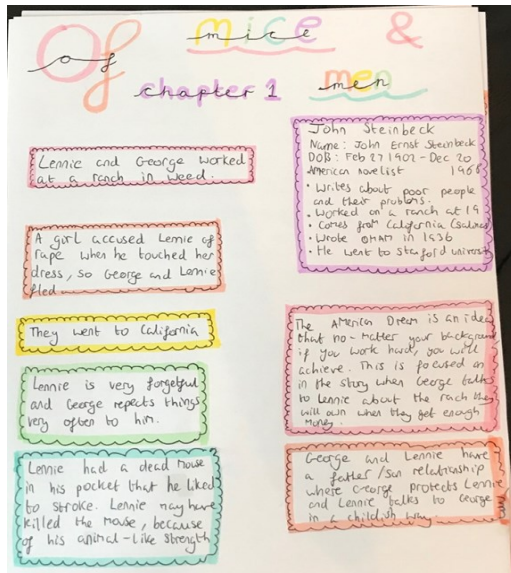 Of mice & men
chapter 1
Lennie and George worked
at a ranch in weed.
A girl accused Lennie of
rape when he touched her
dress, so George and Lennie
fled
They went to California
Lennie is very forgetful
and George repeats things
very often to him.
Lennie had a dead mouse
in his pocket that he liked
to stroke. Lennie may have
killed the mouse, because
of his animal-like strength
John Steinbeck
Name: John Ernst Steinbeck
DOB: Feb 27 1902 - Dec 20
American novelist 1968
• Writes about poor people
and their problems.
• Worked on a ranch at 19
• Comes from California (Salinas)
• Wrote OMAM in 1936
• He went to Stanford universit
The American Dream is an idea
that no-matter your background
if you work hard, you will
achieve. This is focused on
in the story when George talks
to Lennie about the rach they
will own when they get enough
money.
George and Lennie have
a father/son relationship
where George protects Lennie
and Lennie talks to George
in a childish way.